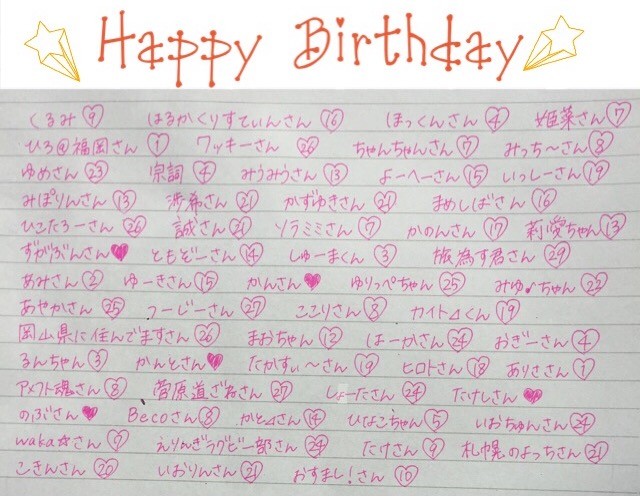 Happy Birthday
くるみ⑨ はるかくりすてぃんさん⑯ ほっくんさん④ 姫菜さん⑦
ひろ@福岡さん① ワッキーさん㉖ ちゃんちゃんさん⑦ みっち~さん⑧
ゆめさん㉓ 宗詞④ みうみうさん⑬ よーへーさん⑮ いっしーさん⑲
みぽりんさん⑬ 涉希さん㉑ かずゆきさん㉑ まめしばさん⑯
ひこたろーさん㉖ 誠さん㉑ ソラミミさん⑦ かのんさん⑰ 莉愛ちゃん⑬
ずがぶんさん♥ ともぞーさん⑭ しゅーまくん③ 旅為す君さん㉙
あみさん② ゆーきさん⑮ かんさん♥ ゆりっぺちゃん㉕ みゆ♪ちゃん㉒
あやかさん㉕ つーじーさん㉗ ここりさん⑧ カイト⊿くん⑲
岡山県に住んでますさん㉖ まおちゃん⑫ はーかさん㉔ おぎーさん④
るんちゃん③ かんとさん♥ たかすぃ~さん⑲ ヒロトさん⑱ ありささん①
アメフト魂さん⑧ 菅原道ざねさん㉗ しょーたさん㉔ たけしさん♥
のぶさん♥ Becoさん⑧ かと⊿さん⑭ ひなこちゃん⑤ いおちゅんさん㉔
waka☆さん⑦ えりんぎラグビー部さん㉔ たけさん⑨ 札幌のよっちさん㉑
こきんさん⑳ いおりんさん㉑ おすまし!さん⑩